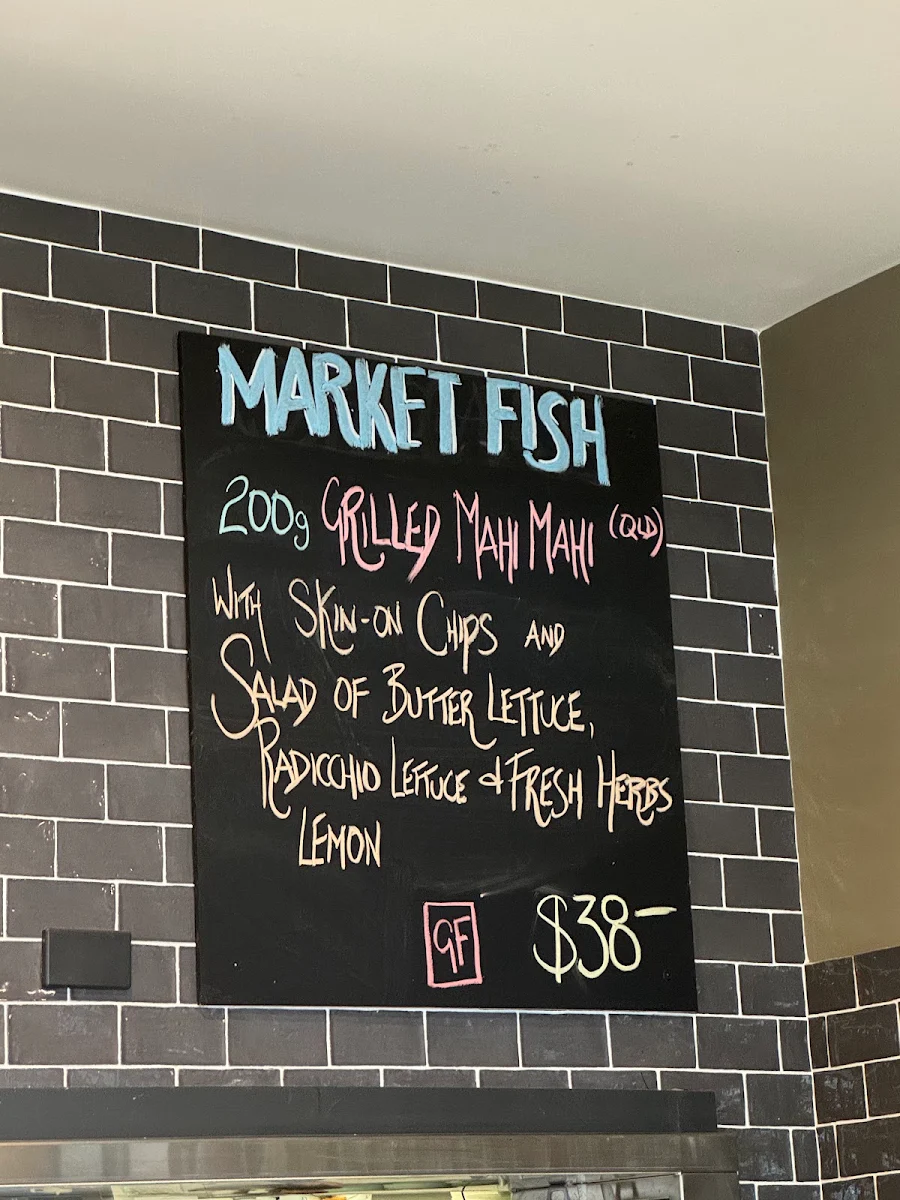 MARKET FISH
200g GRILLED MAHI MAHI (QLD)
WITH SKIN-ON CHIPS AND
SALAD OF BUTTER LETTUCE,
RADICCHIO LETTUCE & FRESH HERBS
LEMON
GF $38-